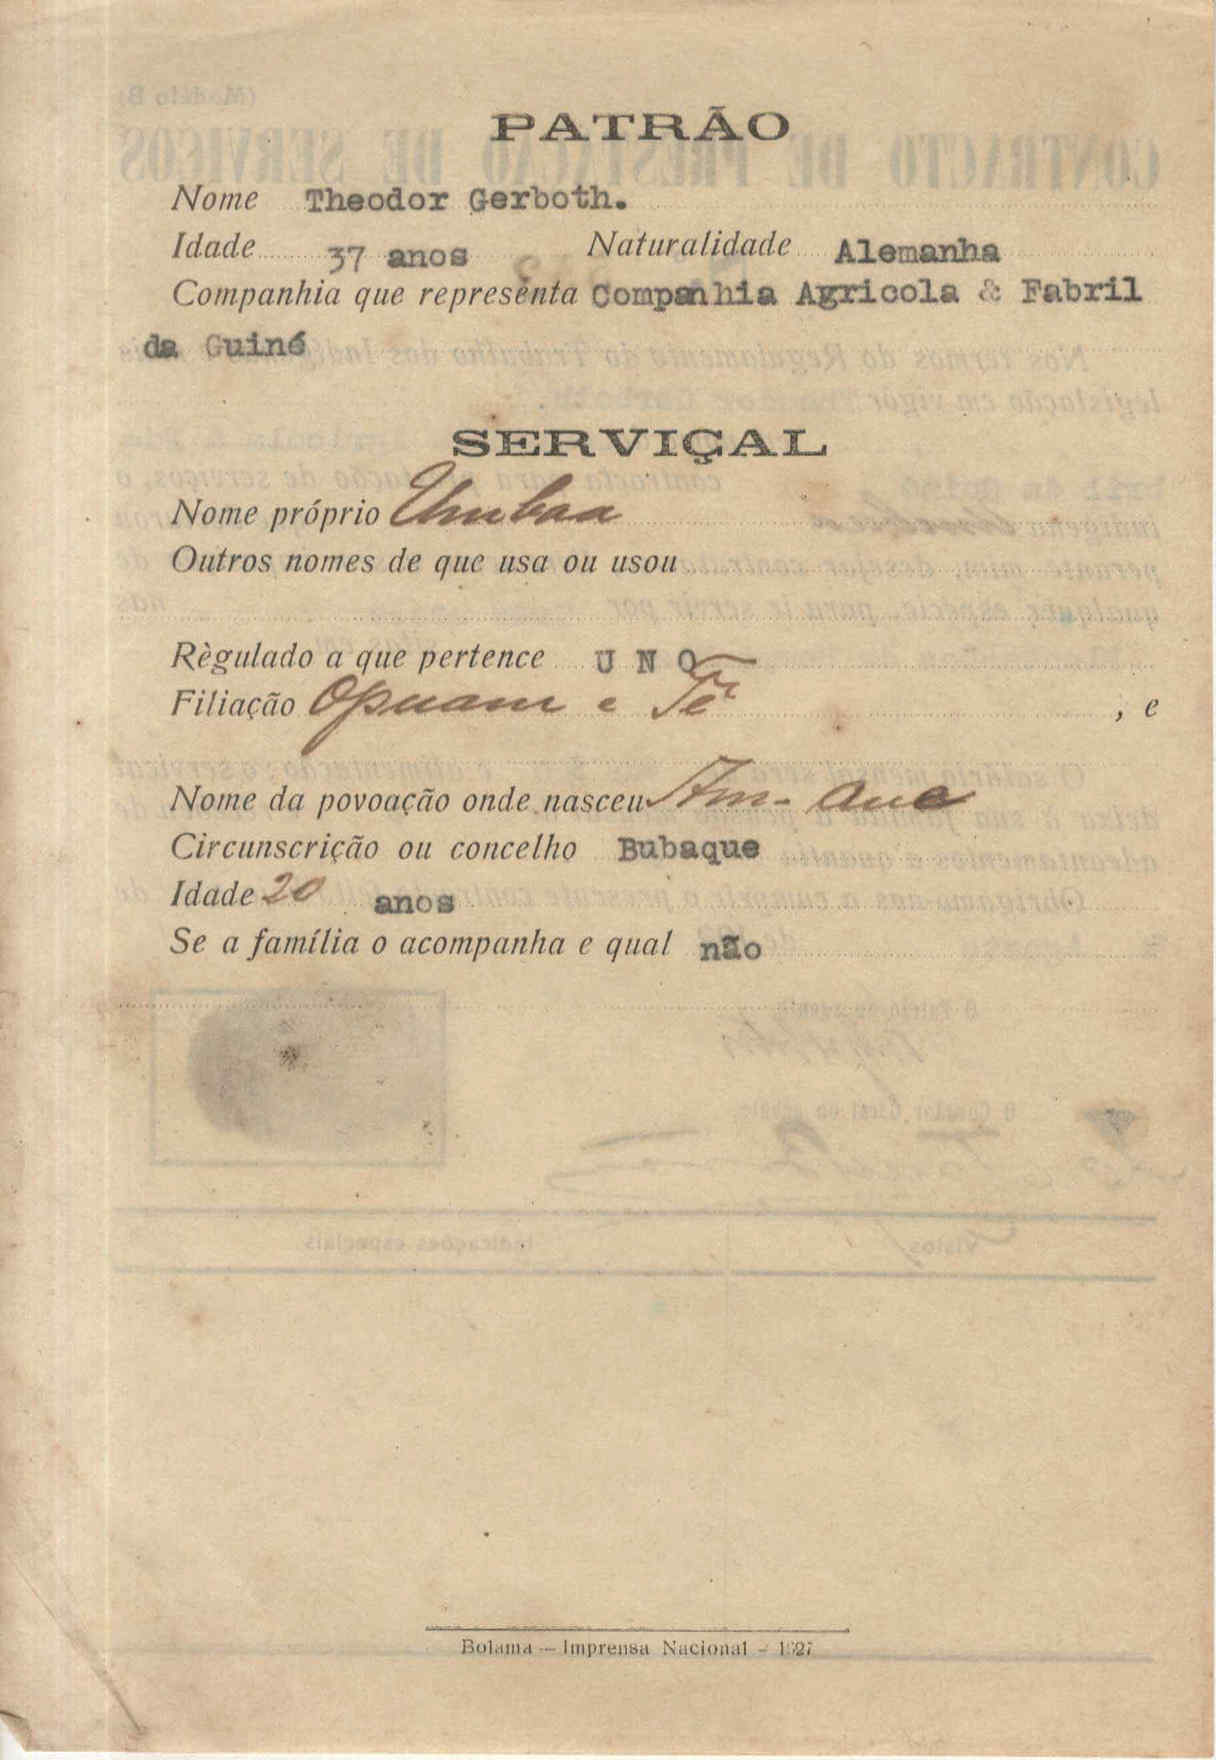 PATRÃO
Nome Theodor Gerboth.
Idade 37 anos Naturalidade Alemanha
Companhia que representa Companhia Agricola & Fabril
da Guiné
SERVIÇAL
Nome próprio Umbaa
Outros nomes de que usa ou usou
Règulado a que pertence U N O
Filiação Opuam e Té , e
Nome da povoação onde nasceu An-ane
Circunscrição ou concelho Bubaque
Idade 20 anos
Se a família o acompanha e qual não
Bolama — Imprensa Nacional — 1927